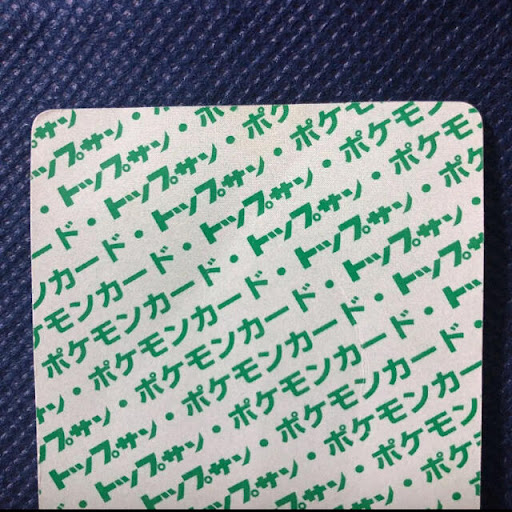 トップサン
トップサン・ポ
ド・トップサン・ポケ
カード・トップサン・ポケモン
モンカード・トップサン・ポケモン
ポケモンカード・トップサン・ポケモン
ン・ポケモンカード・トップサン・ポケ
サン・ポケモンカード・トップサン
トップサン・ポケモンカード・トップ
トップサン・ポケモンカード・
トップサン・ポケモンカード
トップサン・ポケモン
トップサン・ポケ